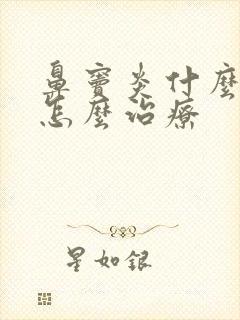 鼻竇炎什麼
怎麼治療
星如銀